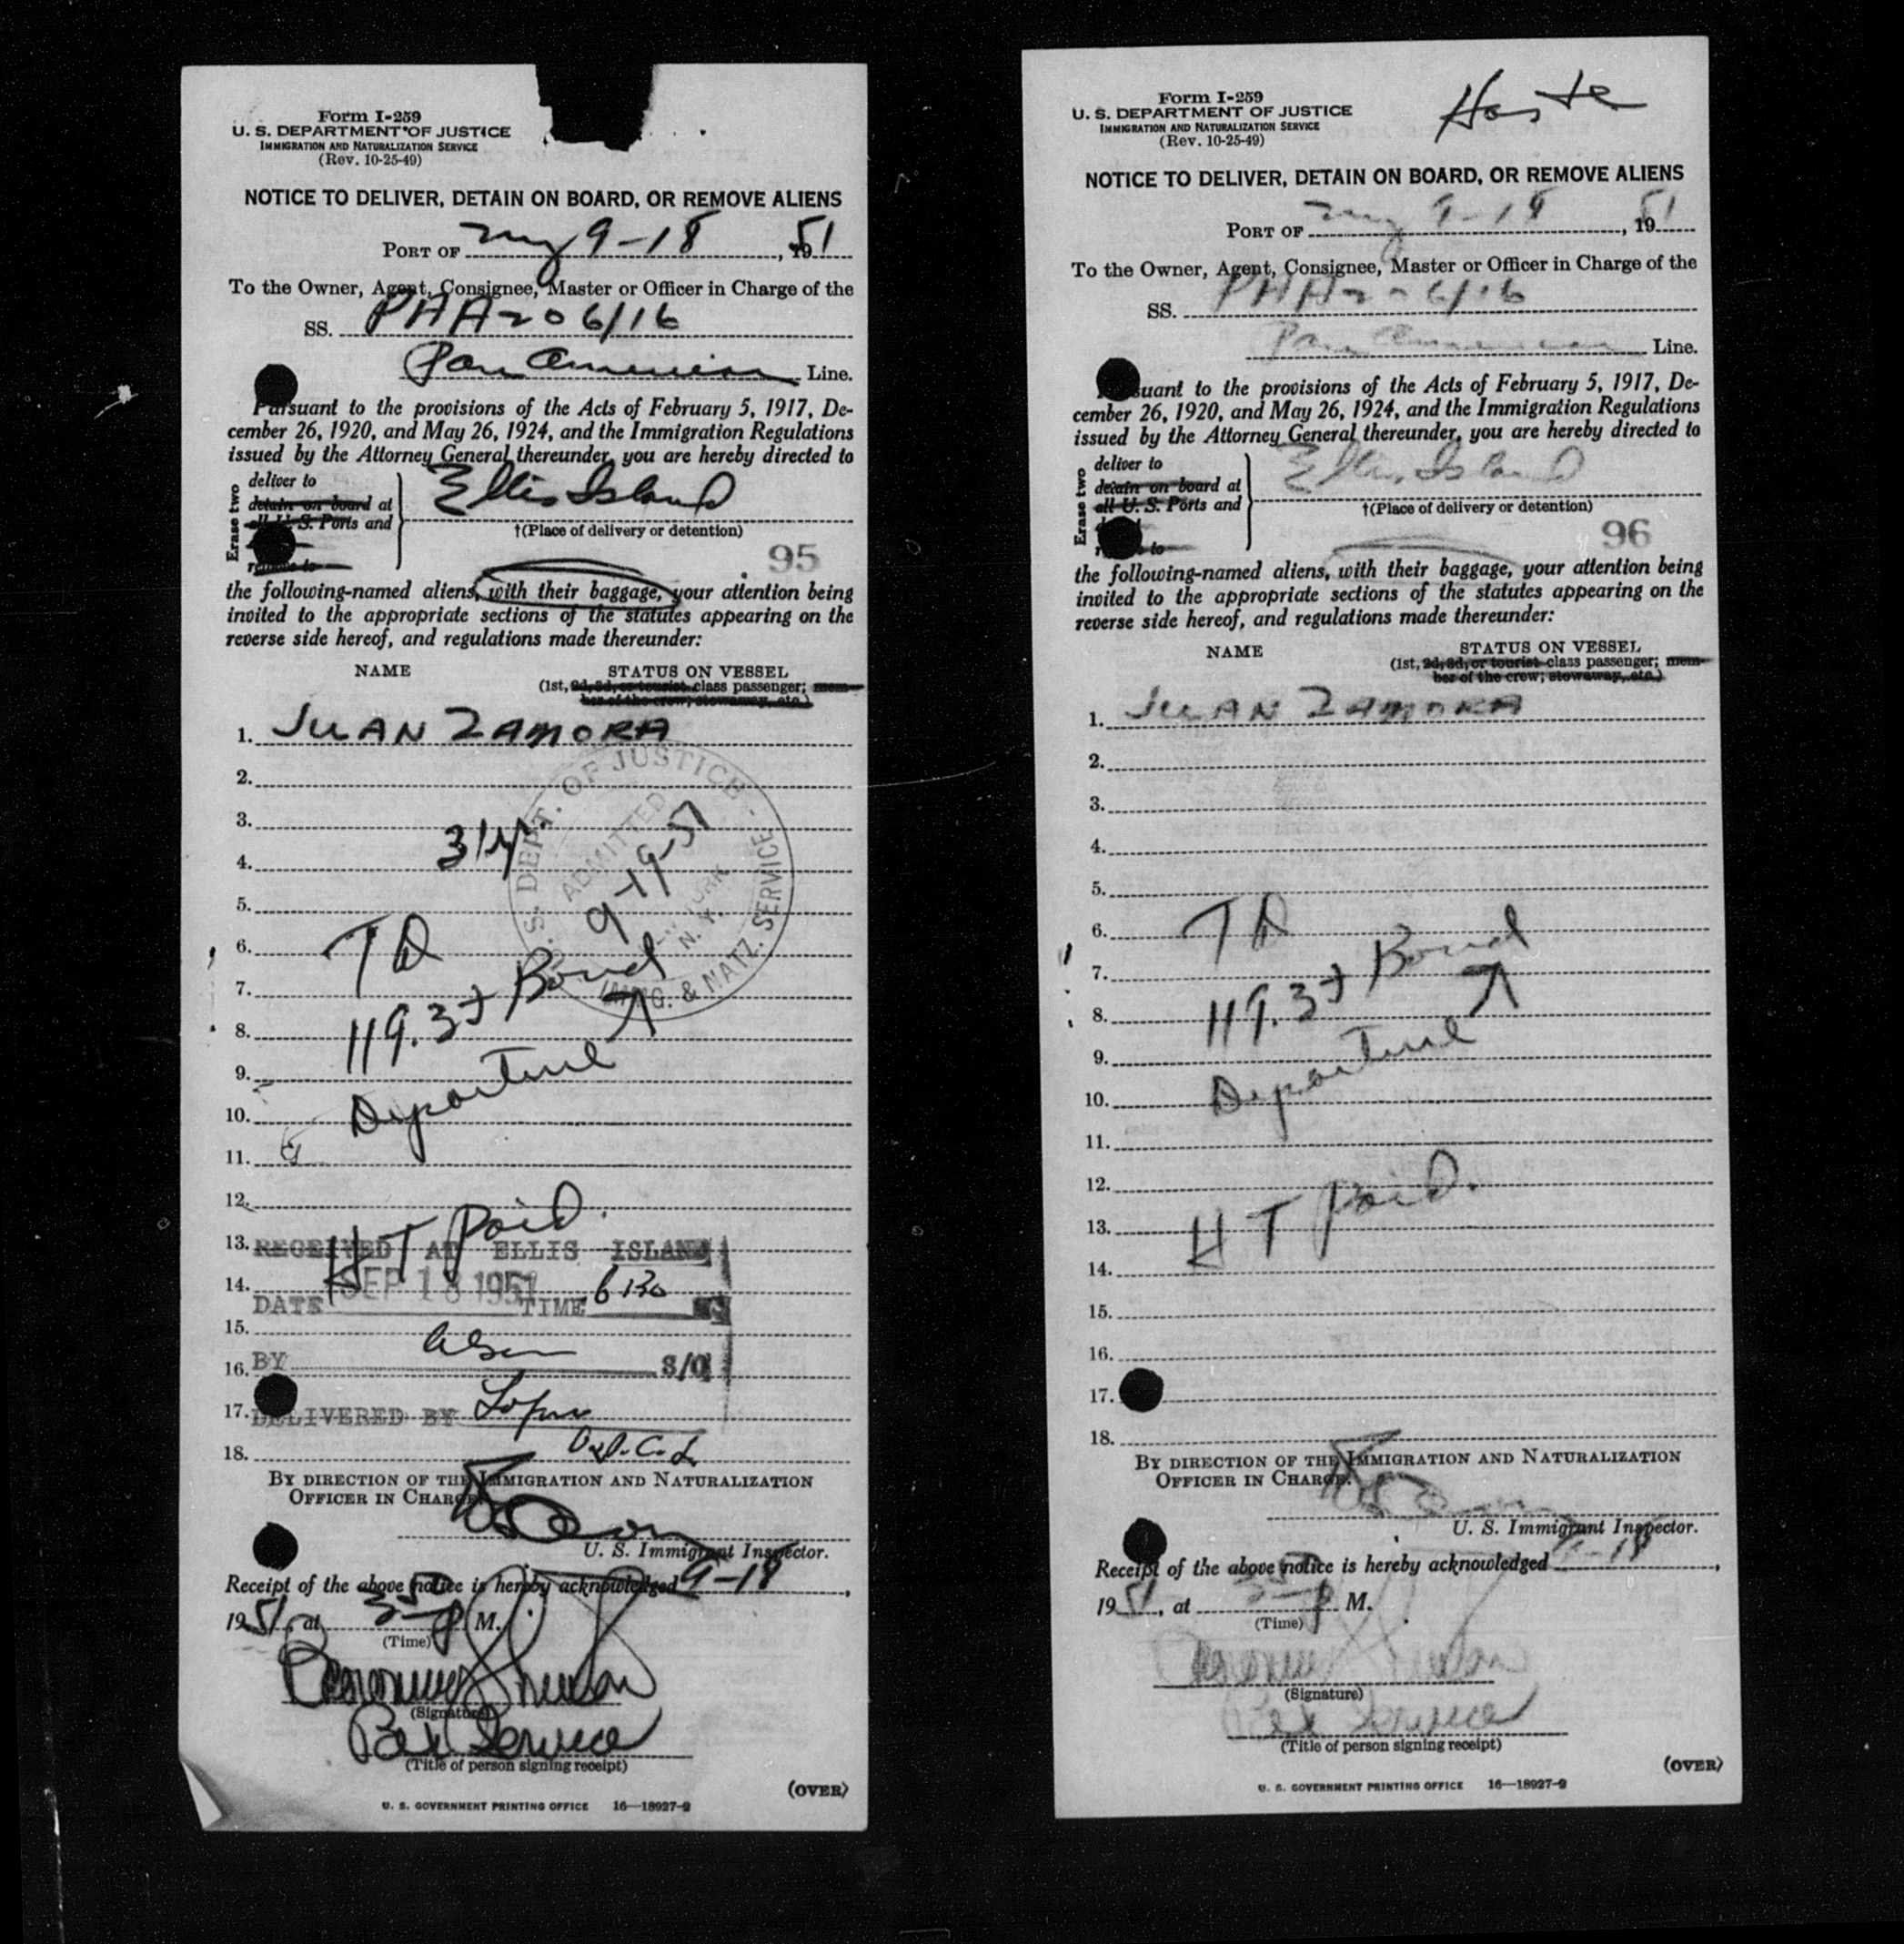 Form I-259
U. S. DEPARTMENT OF JUSTICE
IMMIGRATION AND NATURALIZATION SERVICE
(Rev. 10-25-49)
NOTICE TO DELIVER, DETAIN ON BOARD, OR REMOVE ALIENS
PORT OF 9-18, 1951
To the Owner, Agent, Consignee, Master or Officer in Charge of the
SS. PAA 206/16
Pan American Line.
Pursuant to the provisions of the Acts of February 5, 1917, De-
cember 26, 1920, and May 26, 1924, and the Immigration Regulations
issued by the Attorney General thereunder, you are hereby directed to
Erase two
deliver to
detain on board at
all U. S. Ports and
Ellis Island
†(Place of delivery or detention)
95
the following-named aliens, with their baggage, your attention being
invited to the appropriate sections of the statutes appearing on the
reverse side hereof, and regulations made thereunder:
NAME STATUS ON VESSEL
(1st, 2d, 3d, or tourist class passenger; mem-
ber of the crew; stowaway, etc.)
1. JUAN ZAMORA
2.
3.
4.
5.
6. TD
7. Bond
8. 119.3
9. Departure
10.
11.
12.
13. HT Paid.
14.
15.
16.
17.
18.
U. S. DEPT. OF JUSTICE
ADMITTED
9-19-51
NEW YORK
N. Y.
IMMG. & NATZ. SERVICE
RECEIVED AT ELLIS ISLAND
DATE SEP 18 1951 TIME 6 30
BY S/O
DELIVERED BY
BY DIRECTION OF THE IMMIGRATION AND NATURALIZATION
OFFICER IN CHARGE.
U. S. Immigrant Inspector.
Receipt of the above notice is hereby acknowledged 9-18,
1951, at 350 P M.
(Time)
(Signature)
Service
(Title of person signing receipt)
(OVER)
U. S. GOVERNMENT PRINTING OFFICE 16—18927-2
Form I-259
U. S. DEPARTMENT OF JUSTICE
IMMIGRATION AND NATURALIZATION SERVICE
(Rev. 10-25-49)
NOTICE TO DELIVER, DETAIN ON BOARD, OR REMOVE ALIENS
PORT OF 9-18, 1951
To the Owner, Agent, Consignee, Master or Officer in Charge of the
SS. PAA 206/16
Pan American Line.
Pursuant to the provisions of the Acts of February 5, 1917, De-
cember 26, 1920, and May 26, 1924, and the Immigration Regulations
issued by the Attorney General thereunder, you are hereby directed to
Erase two
deliver to
detain on board at
all U. S. Ports and
Ellis Island
†(Place of delivery or detention)
96
the following-named aliens, with their baggage, your attention being
invited to the appropriate sections of the statutes appearing on the
reverse side hereof, and regulations made thereunder:
NAME STATUS ON VESSEL
(1st, 2d, 3d, or tourist class passenger; mem-
ber of the crew; stowaway, etc.)
1. JUAN ZAMORA
2.
3.
4.
5.
6. TD
7. Bond
8. 119.3
9. Departure
10.
11.
12.
13. HT Paid.
14.
15.
16.
17.
18.
BY DIRECTION OF THE IMMIGRATION AND NATURALIZATION
OFFICER IN CHARGE.
U. S. Immigrant Inspector.
Receipt of the above notice is hereby acknowledged 9-18,
1951, at 350 P M.
(Time)
(Signature)
Service
(Title of person signing receipt)
(OVER)
U. S. GOVERNMENT PRINTING OFFICE 16—18927-2